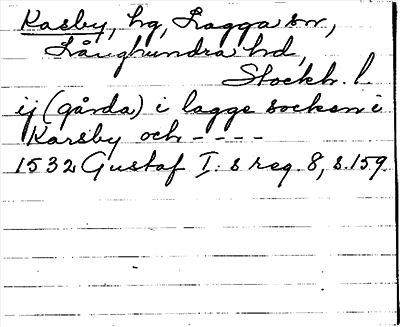 Kasby, hg, Lagga sn,
Långhundra hd,
Stockh. l.
ij (gårda) i lagge socken i
Karsby och - - - -
1532 Gustaf I:s reg. 8, s. 159.